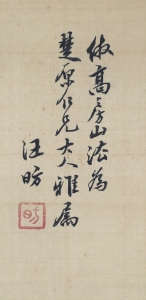 倣高房山法為
楚原仁兄大人雅屬
汪昉
昉